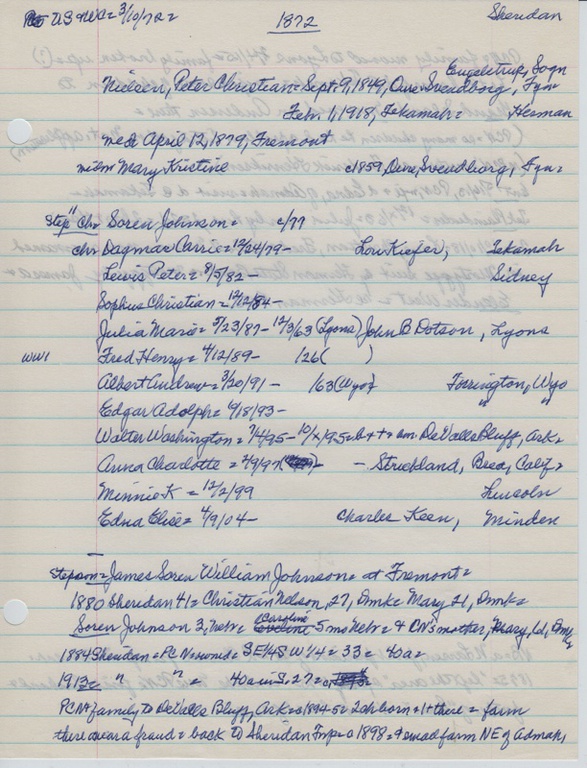 to US & WC = 3/10/72 = 1872 Sheridan
Engelstrup, Sogn
Nielsen, Peter Christian = Sept. 9, 1849, Oure Svendborg, Fyn
Feb. 1, 1918, Tekamah = Herman
md = April 12, 1879, Fremont
Mary Kristine c1859, Denm, Svendborg, Fyn =
Step" Ch = Soren Johnson = c/77
ch = Dagmar Carrie = 12/24/79 - Lou Kiefer, Tekamah
Lewis Peter = 8/5/82 - Sidney
Sophus Christian = 12/12/84 -
Julia Marie = 5/23/87 - 12/3/63 (Lyons) John B Dotson, Lyons
WW1 Fred Henry = 4/12/89 - /26 ( )
Albert Andrew = 3/20/91 - /63 (Wyo) Torrington, Wyo
Edgar Adolph = 4/18/93 - " "
Walter Washington = 7/4/95 - 10/x/95 = b + + = am. DeValls Bluff, Ark =
Anna Charlotte = 2/9/97 - - Strickland, Brea, Calif =
Minnie K = 12/2/99 Lincoln
Edna Elise = 4/9/04 - Charles Keen, Minden
Stepson = James Soren William Johnson = at Fremont =
1880 Sheridan 41 = Christian Nelson, 27, Dmk = Mary 21, Dmk =
Soren Johnson 3, Nebr = Caroline 5 mo Nebr = & CN's mother, Mary, 62, Dmk
1884 Sheridan = PC N = owned = SE 1/4 SW 1/4 = 33 = 40a =
1913 = " " = 40a in S. 27 =
PCN & family to DeValls Bluff, Ark = c 1894-5 = 2 ch born + 1 + there = farm
there as a fraud = back to Sheridan Twp = c 1898 = & small farm NE of Admah,